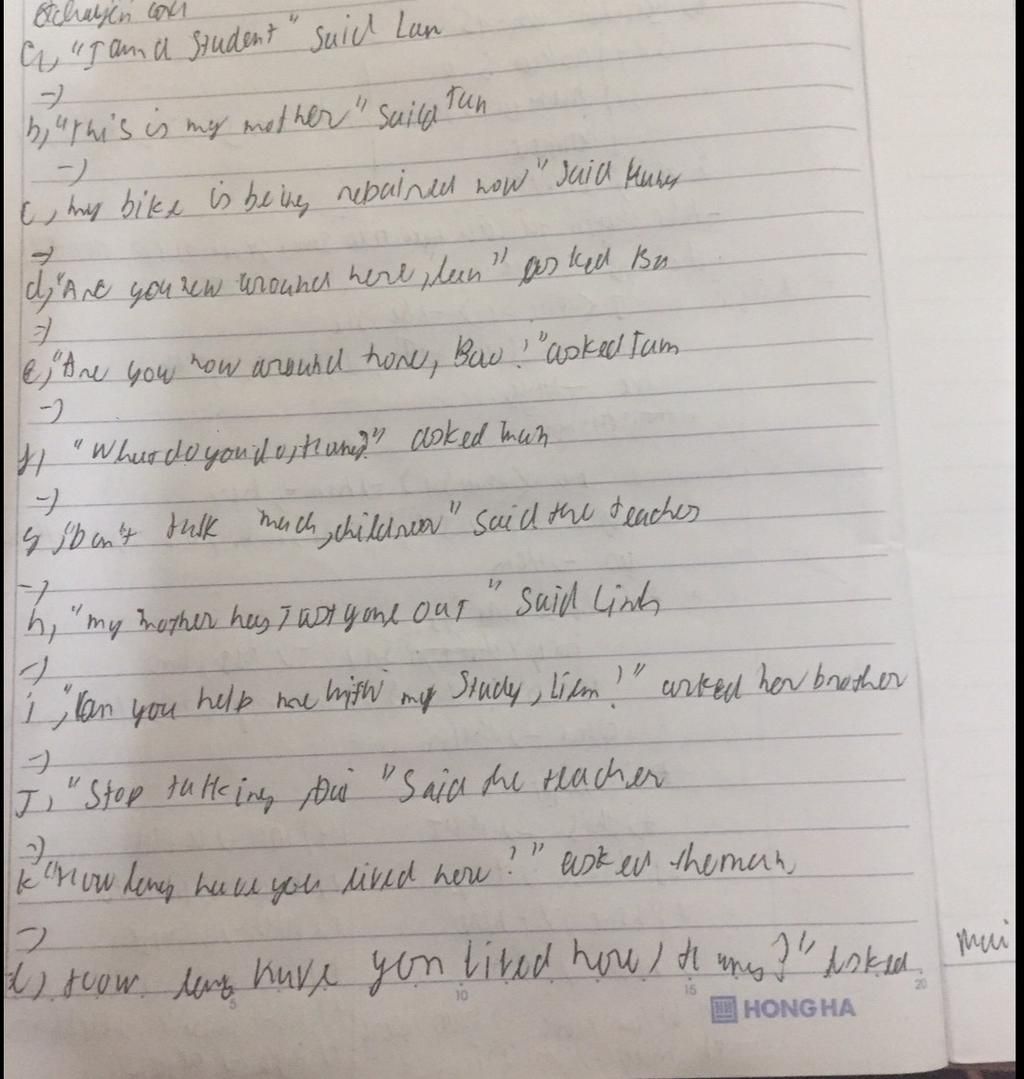 a, "I am a student" said Lan
=)
b, "This is my mother" said Tan
=)
c, my bike is being repaired now" said
=)
d, "Are you new around here, Lan" asked Ba
=)
e, "Are you now around here, Bao?" asked Tam
=)
f, "What do you do, Hang?" asked
=)
g, "Don't talk much, children" said the teacher
=)
h, "my mother has Just gone out" said Linh
=)
i, "Can you help me with my study, Lien?" asked her brother
=)
J, "Stop talking, Dui" said the teacher
=)
k "How long have you lived here?" asked the man
=)
l, How long have you lived here, Hang?" asked Mai
5 10 15 20
HONG HA